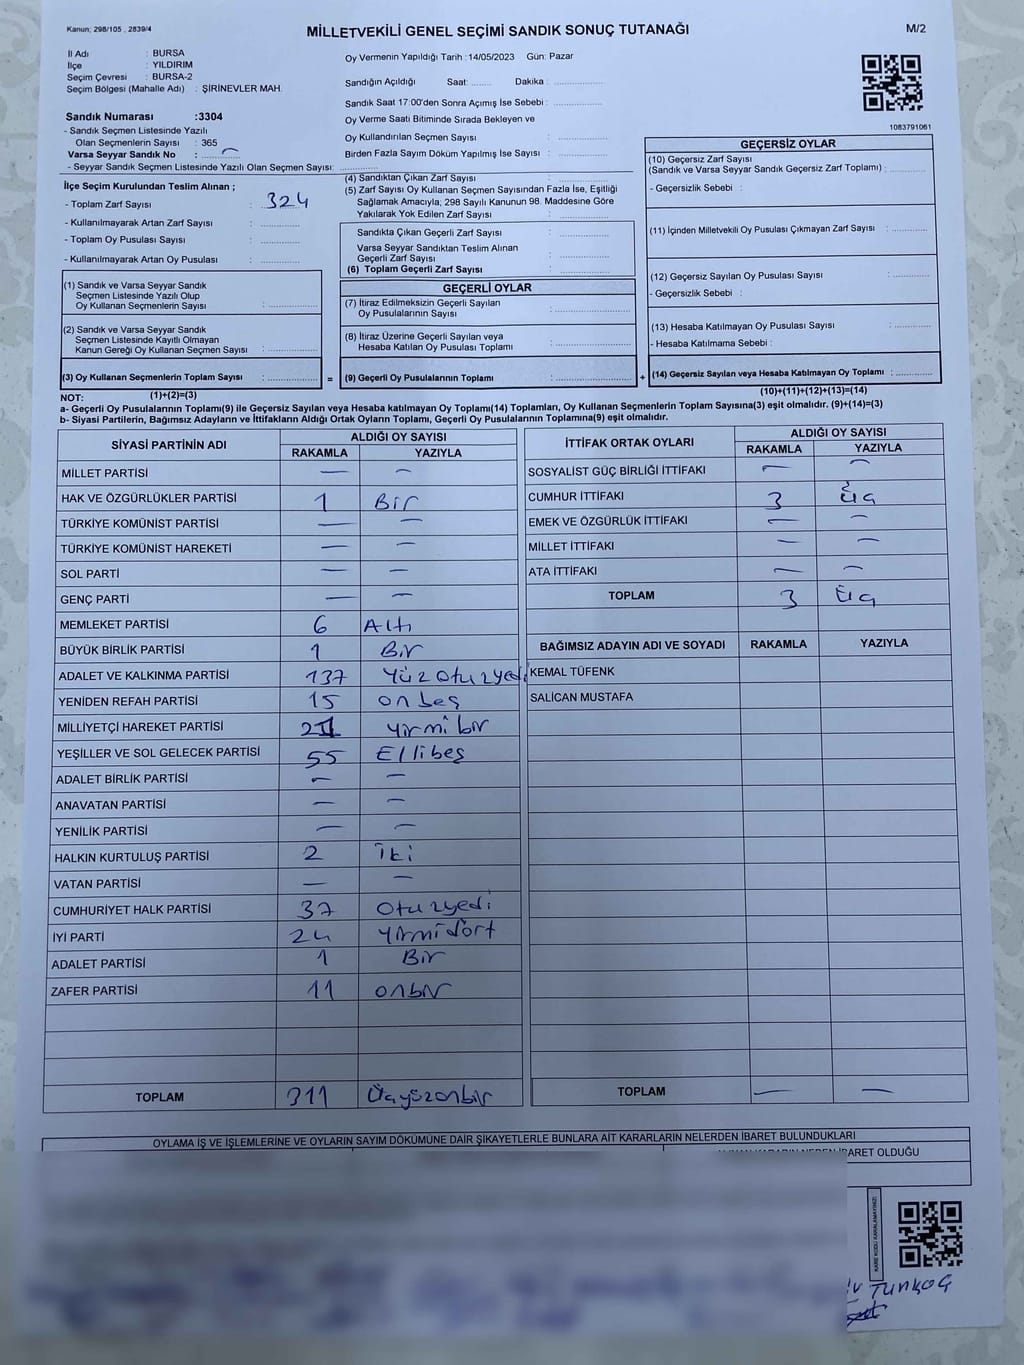 Kanun; 298/105 , 2839/4
MİLLETVEKİLİ GENEL SEÇİMİ SANDIK SONUÇ TUTANAĞI
M/2
İl Adı : BURSA
İlçe : YILDIRIM
Seçim Çevresi : BURSA-2
Seçim Bölgesi (Mahalle Adı) : ŞİRİNEVLER MAH.
Sandık Numarası :3304
- Sandık Seçmen Listesinde Yazılı
Olan Seçmenlerin Sayısı : 365
Varsa Seyyar Sandık No : —
- Seyyar Sandık Seçmen Listesinde Yazılı Olan Seçmen Sayısı: ..............
İlçe Seçim Kurulundan Teslim Alınan ;
- Toplam Zarf Sayısı : 324
- Kullanılmayarak Artan Zarf Sayısı : ..............
- Toplam Oy Pusulası Sayısı : ..............
- Kullanılmayarak Artan Oy Pusulası : ..............
(1) Sandık ve Varsa Seyyar Sandık
Seçmen Listesinde Yazılı Olup
Oy Kullanan Seçmenlerin Sayısı : ..............
(2) Sandık ve Varsa Seyyar Sandık
Seçmen Listesinde Kayıtlı Olmayan
Kanun Gereği Oy Kullanan Seçmen Sayısı : ..............
(3) Oy Kullanan Seçmenlerin Toplam Sayısı : ..............
(1)+(2)=(3)
Oy Vermenin Yapıldığı Tarih :14/05/2023 Gün: Pazar
Sandığın Açıldığı Saat: ....... Dakika : ..............
Sandık Saat 17:00'den Sonra Açımış İse Sebebi : ..............
Oy Verme Saati Bitiminde Sırada Bekleyen ve
Oy Kullandırılan Seçmen Sayısı : ..............
Birden Fazla Sayım Döküm Yapılmış İse Sayısı : ..............
(4) Sandıktan Çıkan Zarf Sayısı : ..............
(5) Zarf Sayısı Oy Kullanan Seçmen Sayısından Fazla İse, Eşitliği
Sağlamak Amacıyla; 298 Sayılı Kanunun 98. Maddesine Göre
Yakılarak Yok Edilen Zarf Sayısı : ..............
Sandıkta Çıkan Geçerli Zarf Sayısı : ..............
Varsa Seyyar Sandıktan Teslim Alınan
Geçerli Zarf Sayısı : ..............
(6) Toplam Geçerli Zarf Sayısı : ..............
GEÇERLİ OYLAR
(7) İtiraz Edilmeksizin Geçerli Sayılan
Oy Pusulalarının Sayısı : ..............
(8) İtiraz Üzerine Geçerli Sayılan veya
Hesaba Katılan Oy Pusulası Toplamı : ..............
= (9) Geçerli Oy Pusulalarının Toplamı : ..............
1083791061
GEÇERSİZ OYLAR
(10) Geçersiz Zarf Sayısı
(Sandık ve Varsa Seyyar Sandık Geçersiz Zarf Toplamı) : ..............
- Geçersizlik Sebebi :
(11) İçinden Milletvekili Oy Pusulası Çıkmayan Zarf Sayısı : ..............
(12) Geçersiz Sayılan Oy Pusulası Sayısı : ..............
- Geçersizlik Sebebi :
(13) Hesaba Katılmayan Oy Pusulası Sayısı : ..............
- Hesaba Katılmama Sebebi :
+ (14) Geçersiz Sayılan veya Hesaba Katılmayan Oy Toplamı : ..............
(10)+(11)+(12)+(13)=(14)
NOT:
a- Geçerli Oy Pusulalarının Toplamı(9) ile Geçersiz Sayılan veya Hesaba katılmayan Oy Toplamı(14) Toplamları, Oy Kullanan Seçmenlerin Toplam Sayısına(3) eşit olmalıdır. (9)+(14)=(3)
b- Siyasi Partilerin, Bağımsız Adayların ve İttifakların Aldığı Ortak Oyların Toplamı, Geçerli Oy Pusulalarının Toplamına(9) eşit olmalıdır.
SİYASİ PARTİNİN ADI ALDIĞI OY SAYISI
RAKAMLA YAZIYLA
MİLLET PARTİSİ — —
HAK VE ÖZGÜRLÜKLER PARTİSİ 1 Bir
TÜRKİYE KOMÜNİST PARTİSİ — —
TÜRKİYE KOMÜNİST HAREKETİ — —
SOL PARTİ — —
GENÇ PARTİ — —
MEMLEKET PARTİSİ 6 Altı
BÜYÜK BİRLİK PARTİSİ 1 Bir
ADALET VE KALKINMA PARTİSİ 137 Yüzotuzyedi
YENİDEN REFAH PARTİSİ 15 onbeş
MİLLİYETÇİ HAREKET PARTİSİ 21 Yirmibir
YEŞİLLER VE SOL GELECEK PARTİSİ 55 Ellibeş
ADALET BİRLİK PARTİSİ — —
ANAVATAN PARTİSİ — —
YENİLİK PARTİSİ — —
HALKIN KURTULUŞ PARTİSİ 2 İki
VATAN PARTİSİ — —
CUMHURİYET HALK PARTİSİ 37 Otuzyedi
İYİ PARTİ 24 Yirmidört
ADALET PARTİSİ 1 Bir
ZAFER PARTİSİ 11 onbir
TOPLAM 311 Üçyüzonbir
İTTİFAK ORTAK OYLARI ALDIĞI OY SAYISI
RAKAMLA YAZIYLA
SOSYALİST GÜÇ BİRLİĞİ İTTİFAKI — —
CUMHUR İTTİFAKI 3 Üç
EMEK VE ÖZGÜRLÜK İTTİFAKI — —
MİLLET İTTİFAKI — —
ATA İTTİFAKI — —
TOPLAM 3 Üç
BAĞIMSIZ ADAYIN ADI VE SOYADI RAKAMLA YAZIYLA
KEMAL TÜFENK
SALİCAN MUSTAFA
TOPLAM — —
OYLAMA İŞ VE İŞLEMLERİNE VE OYLARIN SAYIM DÖKÜMÜNE DAİR ŞİKAYETLERLE BUNLARA AİT KARARLARIN NELERDEN İBARET BULUNDUKLARI
NEDEN İBARET OLDUĞU
KARE KODU KARALAMAYINIZ!